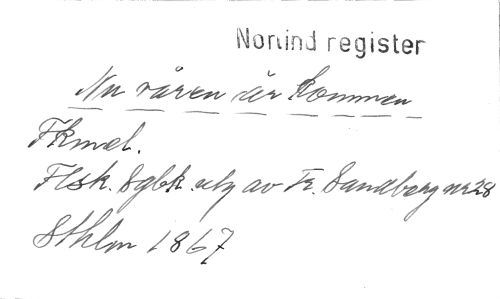 Norlind register
Nu våren är kommen
Fkmel.
Flsk. Sgbk. utg av Fr. Sandberg nr 28
Sthlm 1867